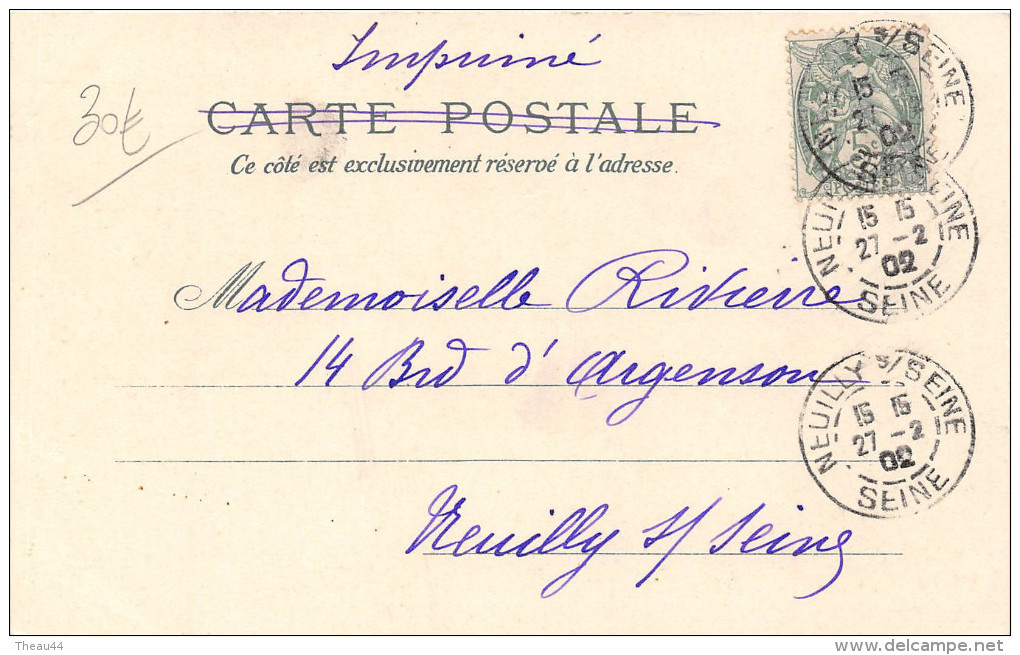 Imprimé
30€
CARTE POSTALE
Ce côté est exclusivement réservé à l'adresse.
Mademoiselle Rivierre
14 Bvd d'Argenson
Neuilly s/ Seine
NEUILLY S/SEINE
15
27
02
SEINE
5c
NEUILLY S/SEINE
15 15
27 -2
02
SEINE
NEUILLY S/SEINE
15 15
27 -2
02
SEINE
Theau44
delcampe.net